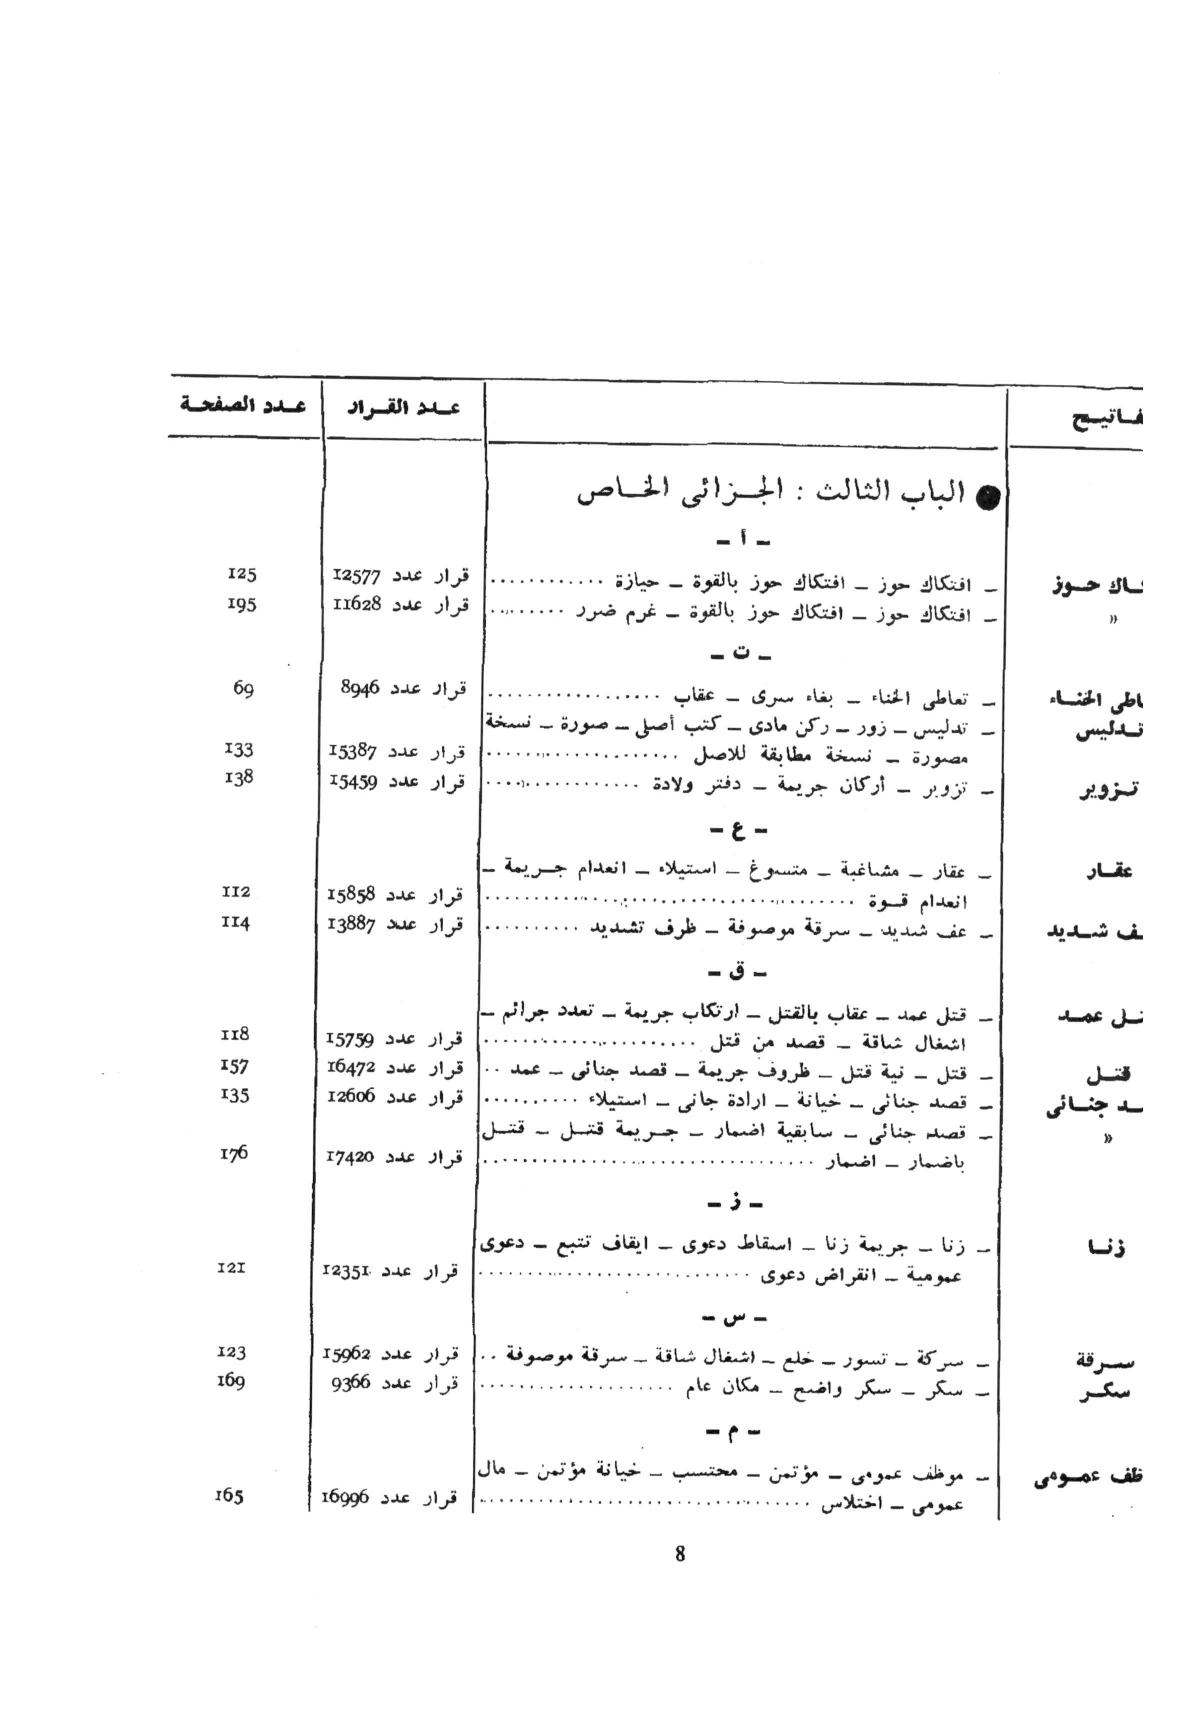 فاتيح عدد القرار عدد الصفحة
● الباب الثالث : الجزائي الخاص
– أ –
حوز – افتكاك حوز – افتكاك حوز بالقوة – حيازة ............ قرار عدد 12577 125
» – افتكاك حوز – افتكاك حوز بالقوة – غرم ضرر ......... قرار عدد 11628 195
– ت –
الخناء – تعاطى الخناء – بغاء سرى – عقاب .................. قرار عدد 8946 69
تدليس – تدليس – زور – ركن مادى – كتب أصلى – صورة – نسخة
مصورة – نسخة مطابقة للاصل .................... قرار عدد 15387 133
تزوير – تزوير – أركان جريمة – دفتر ولادة ................ قرار عدد 15459 138
– ع –
عقار – عقار – مشاغبة – متسوغ – استيلاء – انعدام جريمة –
انعدام قوة ...................................... قرار عدد 15858 112
ف شديد – عف شديد – سرقة موصوفة – ظرف تشديد .......... قرار عدد 13887 114
– ق –
عمد – قتل عمد – عقاب بالقتل – ارتكاب جريمة – تعدد جرائم –
اشغال شاقة – قصد من قتل ...................... قرار عدد 15759 118
قتل – قتل – نية قتل – ظروف جريمة – قصد جنائى – عمد .. قرار عدد 16472 157
د جنائى – قصد جنائى – خيانة – ارادة جانى – استيلاء .......... قرار عدد 12606 135
» – قصد جنائى – سابقية اضمار – جريمة قتل – قتل
باضمار – اضمار .................................. قرار عدد 17420 176
– ز –
زنا – زنا – جريمة زنا – اسقاط دعوى – ايقاف تتبع – دعوى
عمومية – انقراض دعوى ............................ قرار عدد 12351 121
– س –
سرقة – سركة – تسور – خلع – اشغال شاقة – سرقة موصوفة .. قرار عدد 15962 123
سكر – سكر – سكر واضح – مكان عام .................... قرار عدد 9366 169
– م –
ظف عمومى – موظف عمومى – مؤتمن – محتسب – خيانة مؤتمن – مال
عمومى – اختلاس .................................. قرار عدد 16996 165
8